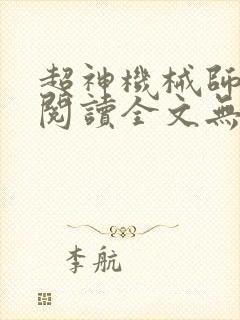 超神機械師
閱讀全文無
李航